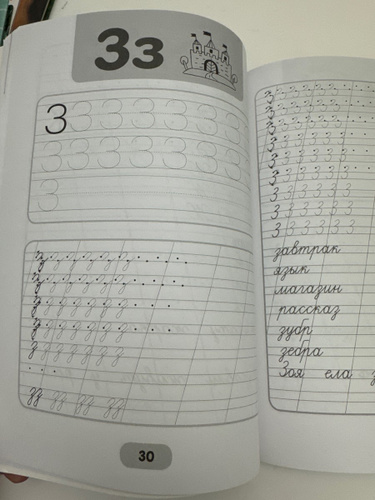 Зз
З З З З З З З
З З З З З З З
З
з з з з з з з
з з з з з з з
з з з з з з з
з з з з з з з
з з з з з з з
зз зз зз зз
30
З З З З З З З
З З З З З З З
З З З З З З З
З З З З З З З
З З З З З З З
З З З З З З З
З З З З З З З
З З З З З З З
завтрак
язык
магазин
рассказ
зубр
зебра
Зоя ела з